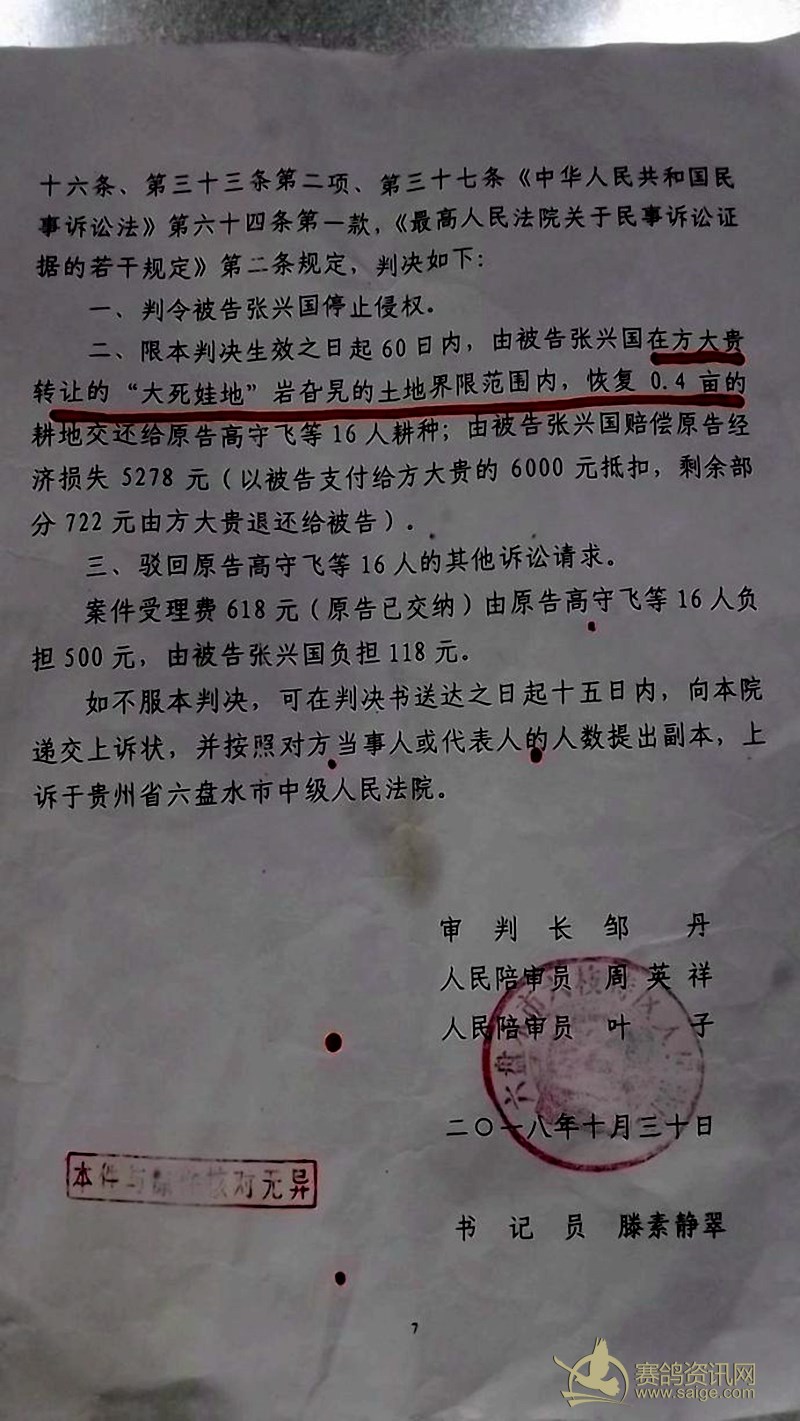 十六条、第三十三条第二项、第三十七条《中华人民共和国民
事诉讼法》第六十四条第一款，《最高人民法院关于民事诉讼证
据的若干规定》第二条规定，判决如下：
一、判令被告张兴国停止侵权。
二、限本判决生效之日起 60 日内，由被告张兴国在方大贵
转让的“大死娃地”岩旮旯的土地界限范围内，恢复 0.4 亩的
耕地交还给原告高守飞等 16 人耕种；由被告张兴国赔偿原告经
济损失 5278 元（以被告支付给方大贵的 6000 元抵扣，剩余部
分 722 元由方大贵退还给被告）。
三、驳回原告高守飞等 16 人的其他诉讼请求。
案件受理费 618 元（原告已交纳）由原告高守飞等 16 人负
担 500 元，由被告张兴国负担 118 元。
如不服本判决，可在判决书送达之日起十五日内，向本院
递交上诉状，并按照对方当事人或代表人的人数提出副本，上
诉于贵州省六盘水市中级人民法院。
审 判 长 邹 丹
人民陪审员 周 英 祥
人民陪审员 叶 子
二〇一八年十月三十日
本件与原件核对无异
书 记 员 滕素静翠
7
赛鸽资讯网
www.saige.com